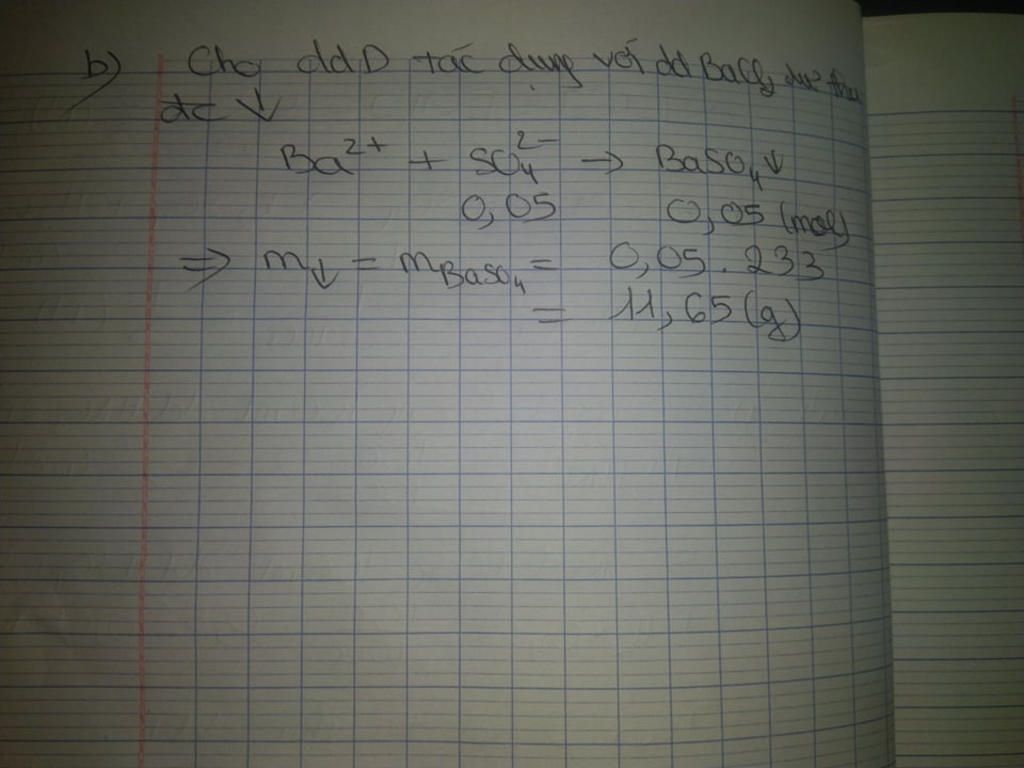 b) Cho ddD tác dụng với dd BaCl₂ dư thu
đc ↓
Ba²⁺ + SO₄²⁻ → BaSO₄↓
0,05 0,05 (mol)
⇒ m↓ = mBaSO₄ = 0,05 . 233
= 11,65 (g)